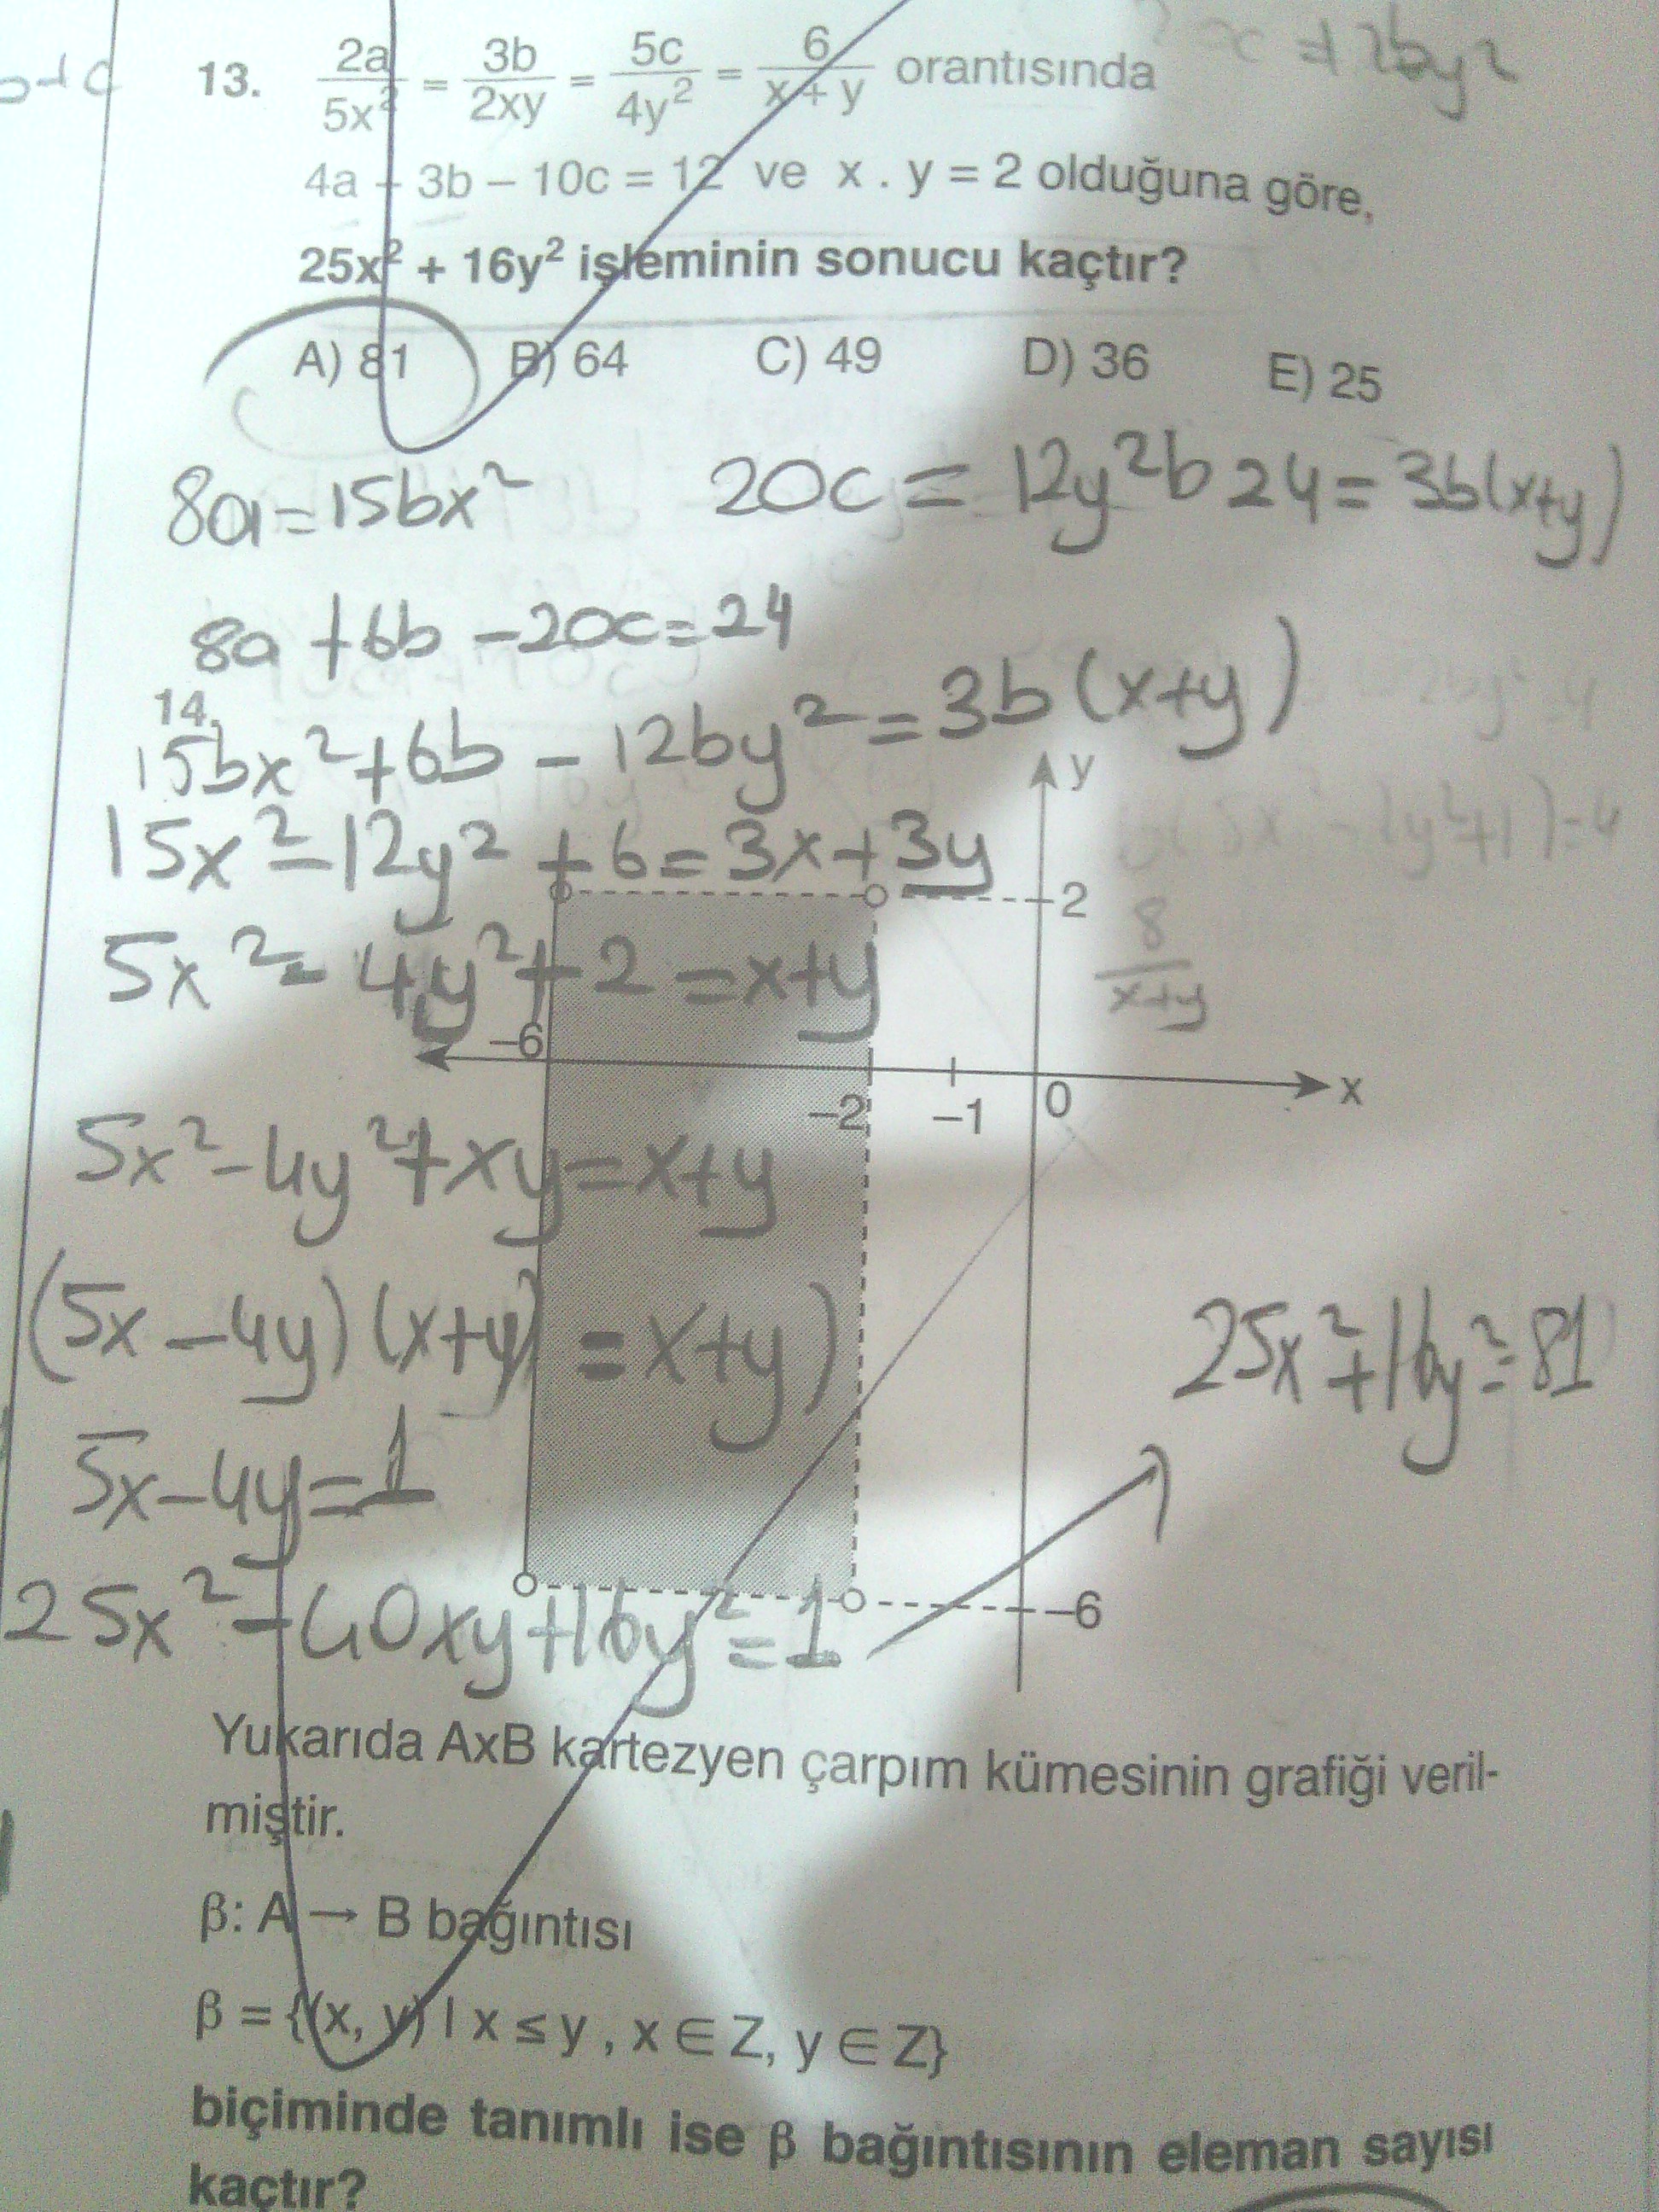 13. 2a/5x² = 3b/2xy = 5c/4y² = 6/x + y orantısında
4a + 3b – 10c = 12 ve x . y = 2 olduğuna göre,
25x² + 16y² işleminin sonucu kaçtır?
A) 81 B) 64 C) 49 D) 36 E) 25
8a=15bx² 20c = 12y²b 24=3b(x+y)
8a +6b -20c=24
14.
15bx²+6b - 12by² = 3b (x+y)
15x²-12y² +6=3x+3y
y
2
5x²- 4y²+2 =x+y
8/x+y
–6
–2 –1 0 x
5x²-4y²+xy=x+y
(5x -4y) (x+y) = x+y)
25x²+16y²=81
5x-4y=1
–6
25x²-40xy+16y²=1
Yukarıda AxB kartezyen çarpım kümesinin grafiği veril-
miştir.
β: A → B bağıntısı
β = {(x, y) | x ≤ y , x ∈ Z, y ∈ Z}
biçiminde tanımlı ise β bağıntısının eleman sayısı
kaçtır?